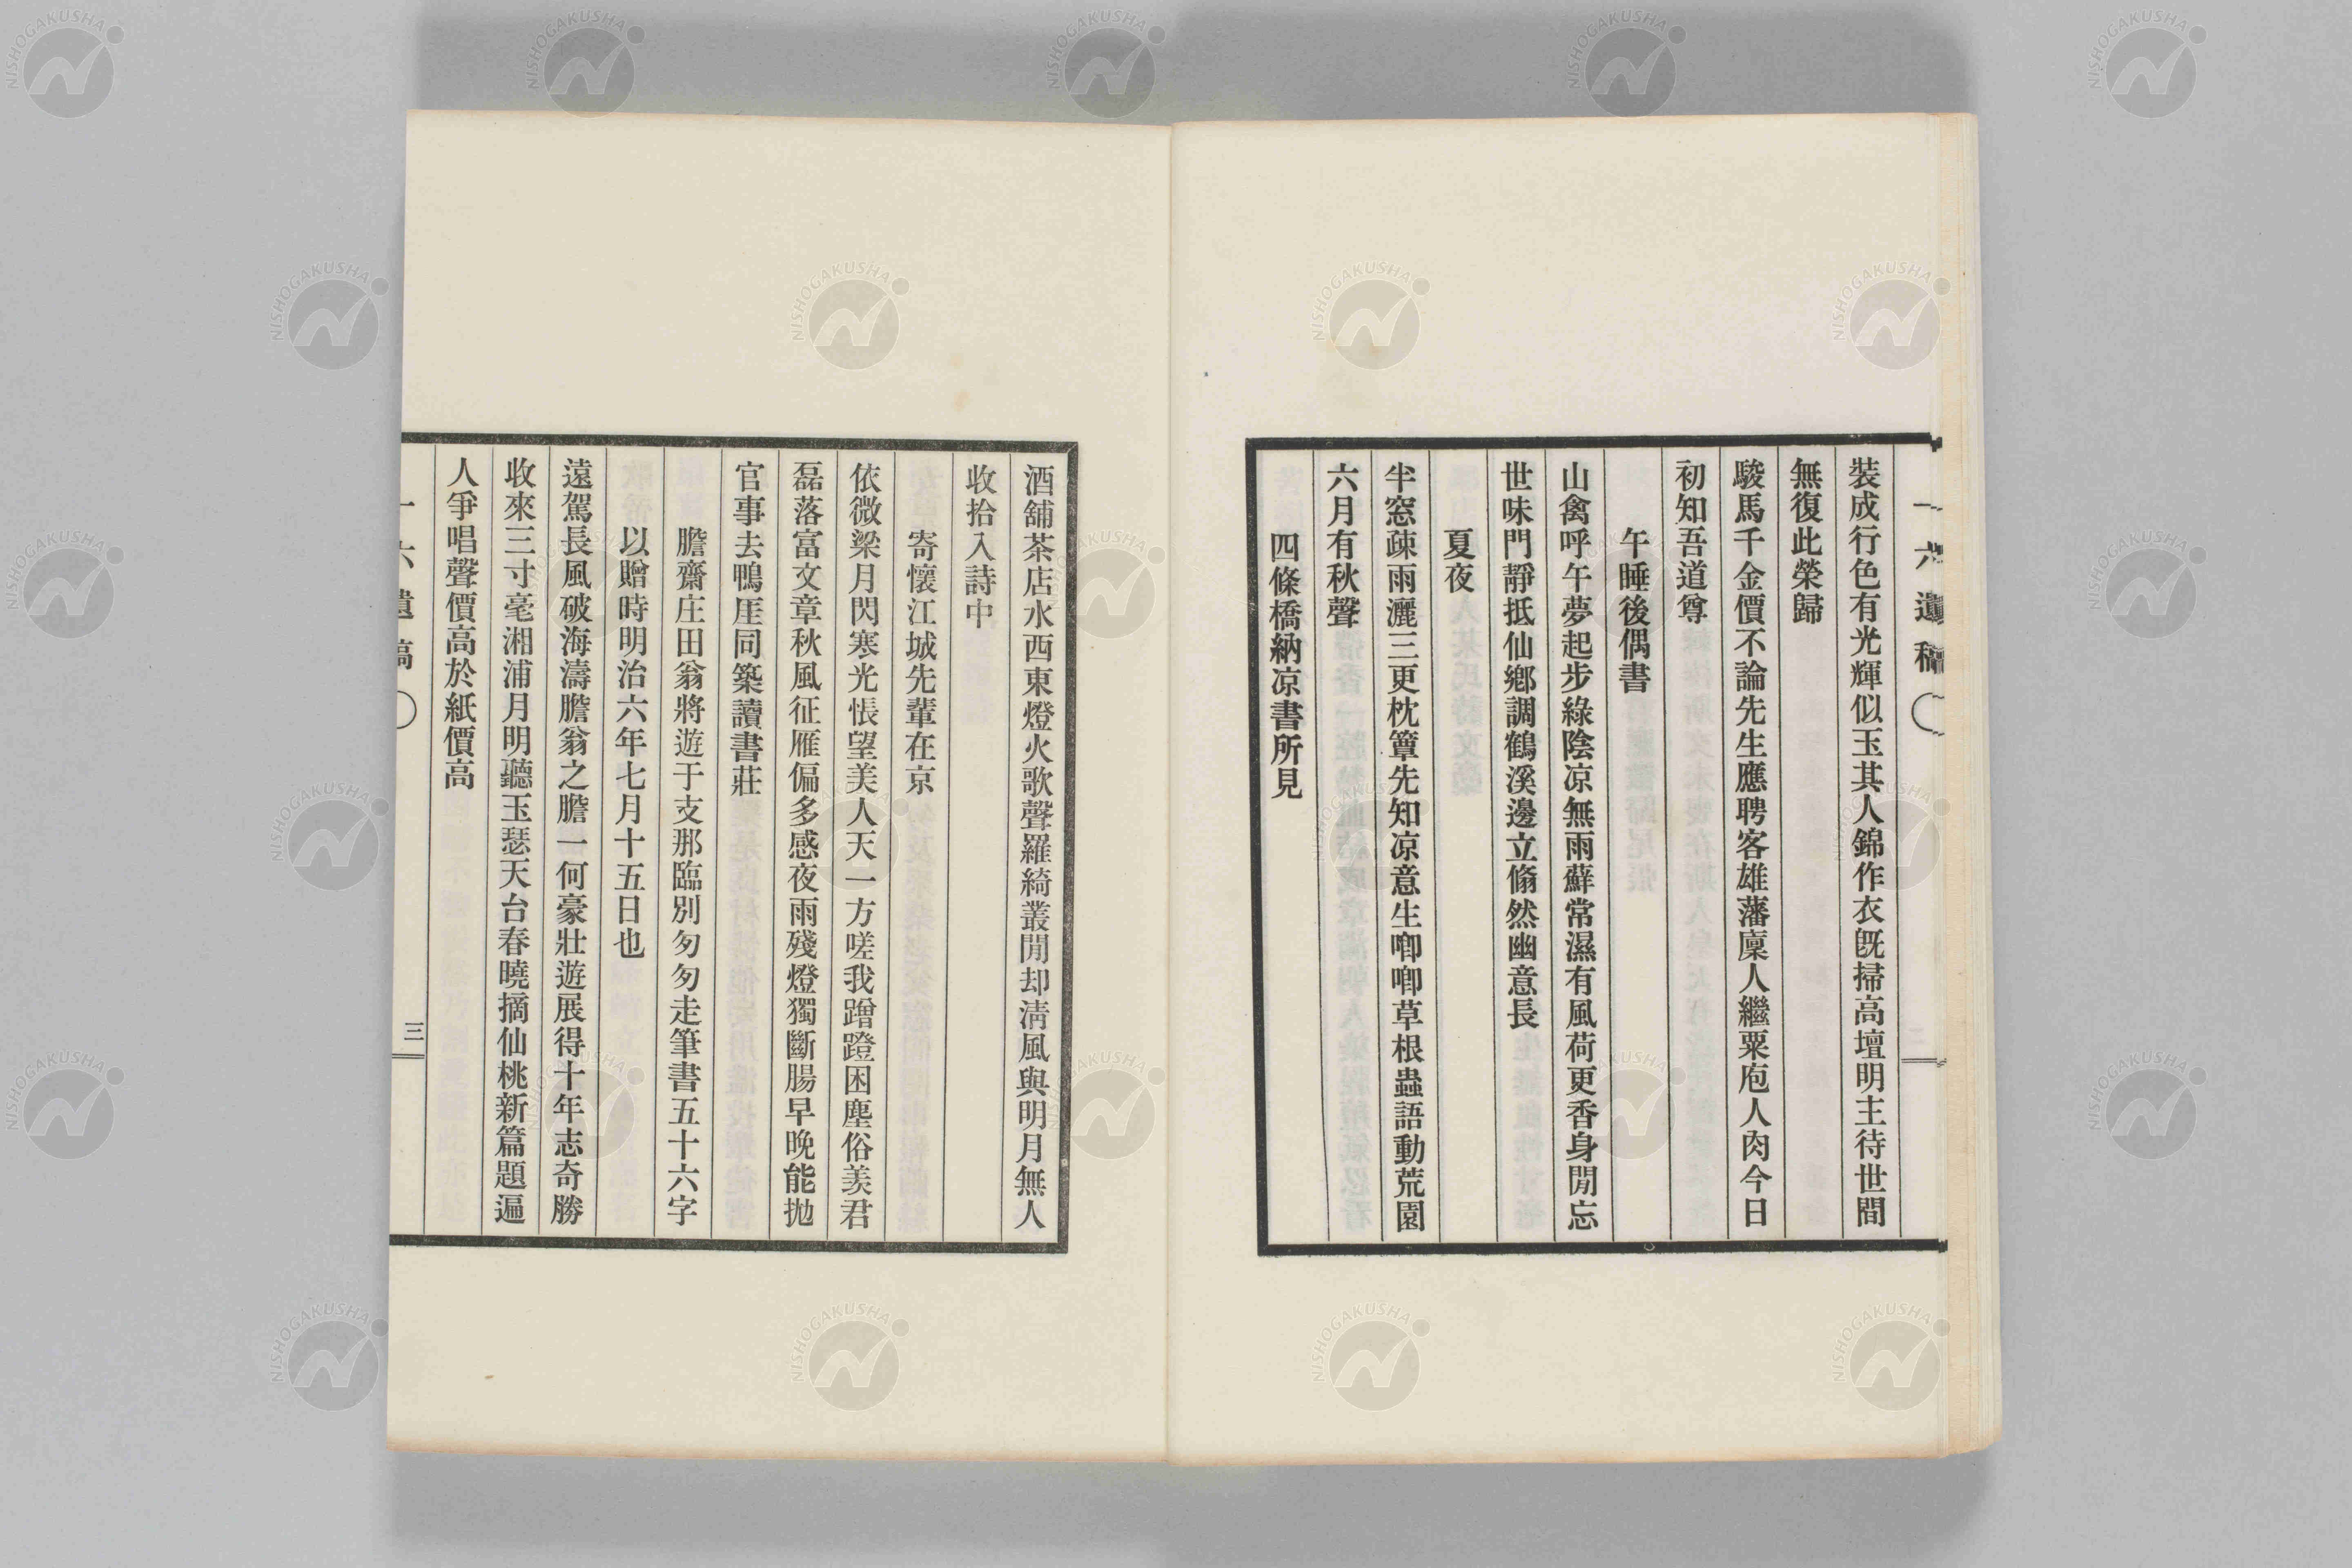 一六遺稿
裝成行色有光輝似玉其人錦作衣旣掃高壇明主待世間
無復此榮歸
駿馬千金價不論先生應聘客雄藩廩人繼粟庖人肉今日
初知吾道尊
午睡後偶書
山禽呼午夢起步綠陰凉無雨蘚常濕有風荷更香身閒忘
世味門靜抵仙鄕調鶴溪邊立翛然幽意長
夏夜
半窓疎雨灑三更枕簟先知凉意生喞喞草根蟲語動荒園
六月有秋聲
四條橋納凉書所見
酒舖茶店水西東燈火歌聲羅綺叢閒却淸風與明月無人
收拾入詩中
寄懷江城先輩在京
依微梁月閃寒光悵望美人天一方嗟我蹭蹬困塵俗羨君
磊落富文章秋風征雁偏多感夜雨殘燈獨斷腸早晩能抛
官事去鴨厓同築讀書莊
膽齋庄田翁將遊于支那臨別匆匆走筆書五十六字
以贈時明治六年七月十五日也
遠駕長風破海濤膽翁之膽一何豪壯遊展得十年志奇勝
收來三寸毫湘浦月明聽玉瑟天台春曉摘仙桃新篇題遍
人爭唱聲價高於紙價高
一六遺稿
三
NISHOGAKUSHA